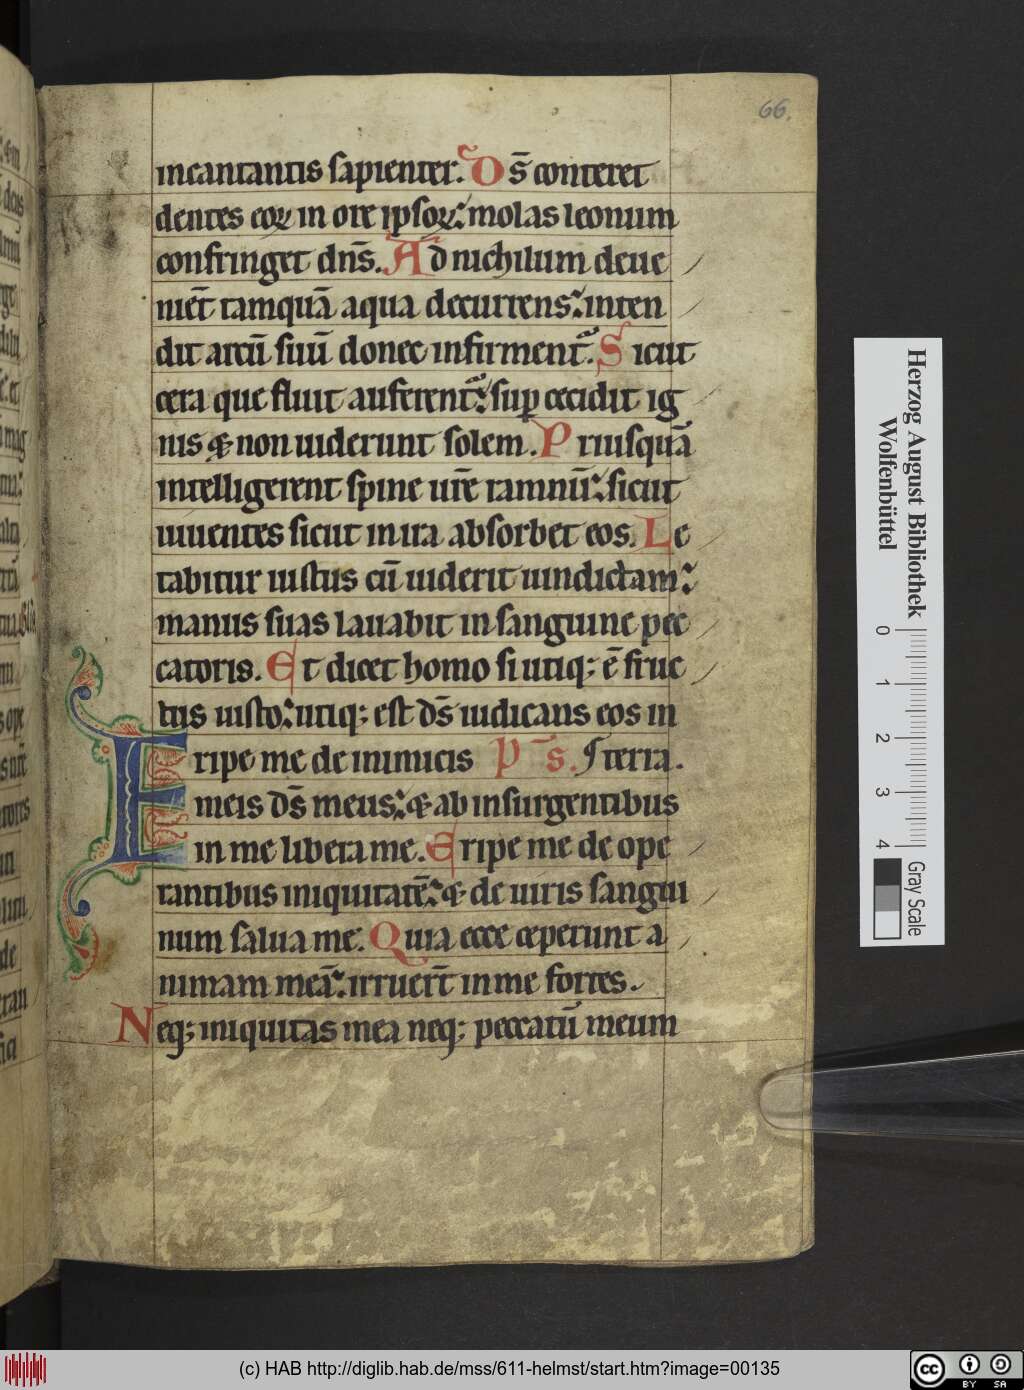 66.
incantantis sapienter. Ds̄ conteret
dentes eoꝝ in ore ipsoꝝ: molas leonum
confringet dns̄. Ad nichilum deue
niet̄ tamquā aqua decurrens: inten
dit arcū suū donec infirment᷑. Sicut
cera que fluit auferent᷑: sup cecidit ig
nis & non uiderunt solem. Priusquā
intelligerent spine ur̄e ramnū: sicut
uiuentes sicut in ira absorbet eos. Le
tabitur iustus cū uiderit uindictam:
manus suas lauabit in sanguine pec
catoris. Et dicet homo si utiq; ē fruc
tus iusto: utiq; est ds̄ iudicans eos in
Eripe me de inimicis P̄s. terra.
meis ds̄ meus: & ab insurgentibus
in me libera me. Eripe me de ope
rantibus iniquitatē: & de uiris sangui
num salua me. Quia ecce ceperunt a
nimam meā: irruer̄t in me fortes.
Neq; iniquitas mea neq; peccatū meum
Herzog August Bibliothek
Wolfenbüttel
0 1 2 3 4
Gray Scale
(c) HAB http://diglib.hab.de/mss/611-helmst/start.htm?image=00135
cc BY SA